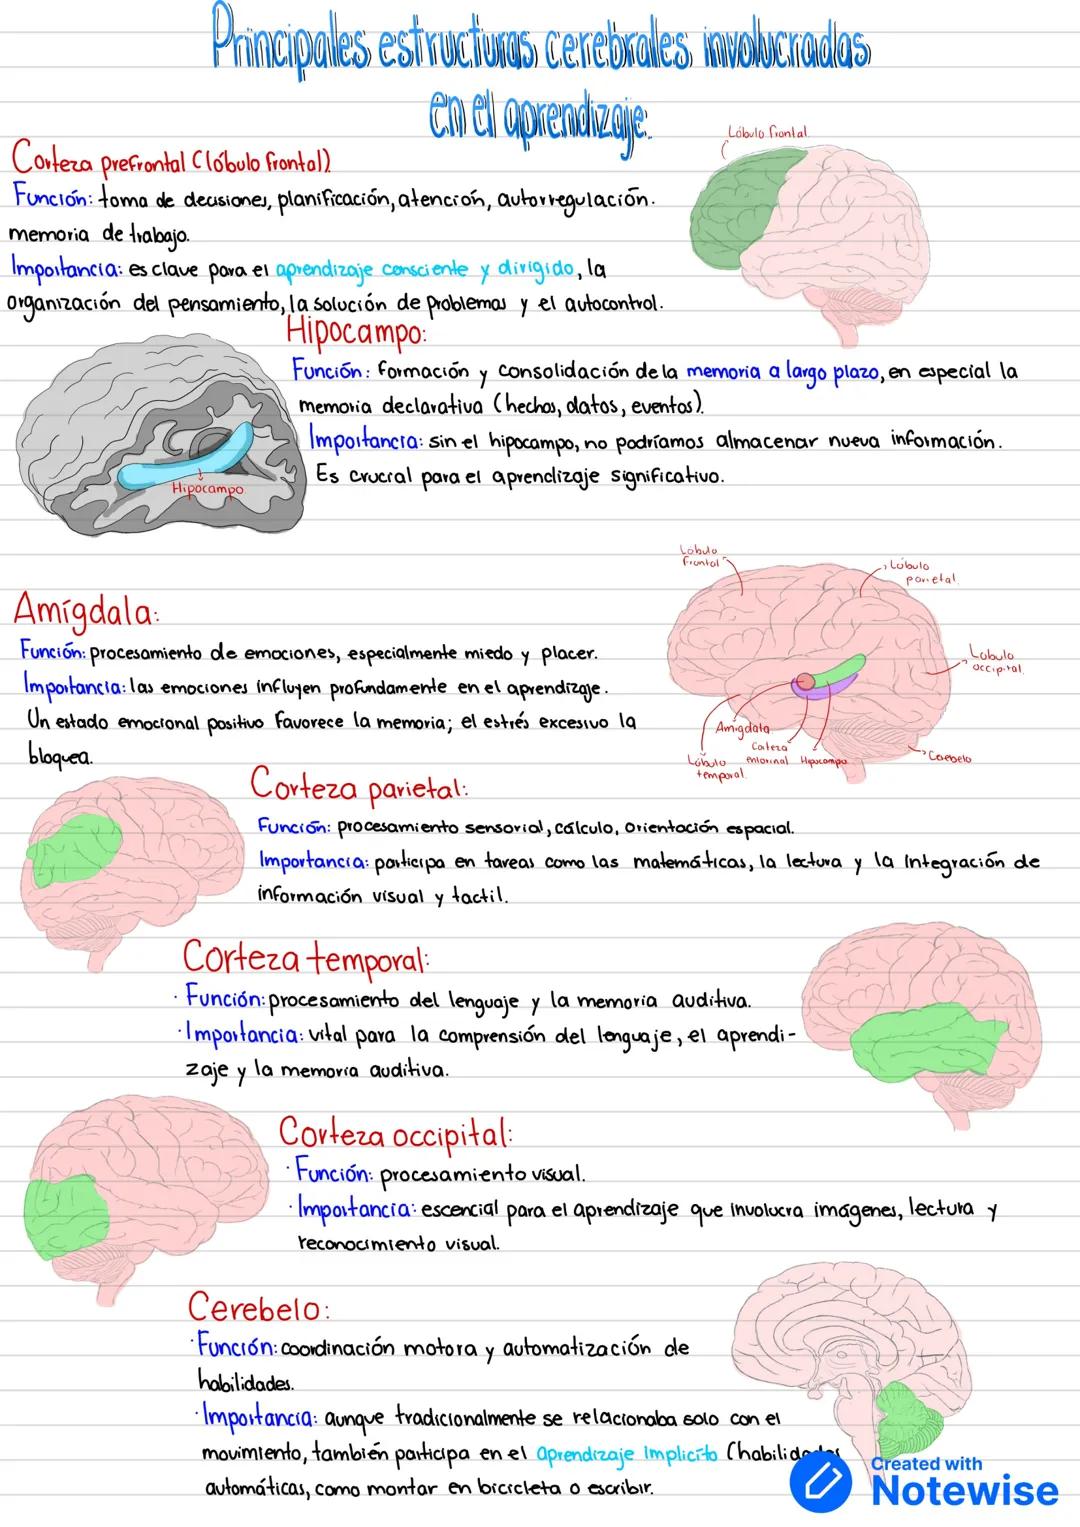 Principales estructuras cerebrales involucradas
en el aprendizaje:
Corteza prefrontal (lóbulo frontal)
Lóbulo frontal
Función: toma de decisiones, planificación, atención, autorregulación.
memoria de trabajo.
Importancia: es clave para el aprendizaje consciente y dirigido, la
organización del pensamiento, la solución de problemas y el autocontrol.
Hipocampo:
Función: formación y consolidación de la memoria a largo plazo, en especial la
memoria declarativa (hechos, datos, eventos).
Importancia: sin el hipocampo, no podríamos almacenar nueva información.
Es crucial para el aprendizaje significativo.
Hipocampo
Amígdala:
Función: procesamiento de emociones, especialmente miedo y placer.
Importancia: las emociones influyen profundamente en el aprendizaje.
Un estado emocional positivo favorece la memoria; el estrés excesivo la
bloquea.
Lóbulo
frontal
Lóbulo
parietal
Lobulo
occipital
Amigdala
Corteza
entorinal
Hipocampo
Lóbulo
temporal
Cerebelo
Corteza parietal:
Función: procesamiento sensorial, cálculo, orientación espacial.
Importancia: participa en tareas como las matemáticas, la lectura y la integración de
información visual y tactil.
Corteza temporal:
· Función: procesamiento del lenguaje y la memoria auditiva.
· Importancia: vital para la comprensión del lenguaje, el aprendi-
zaje y la memoria auditiva.
Corteza occipital:
· Función: procesamiento visual.
· Importancia: escencial para el aprendizaje que involucra imágenes, lectura y
reconocimiento visual.
Cerebelo:
· Función: coordinación motora y automatización de
habilidades.
· Importancia: aunque tradicionalmente se relacionaba solo con el
movimiento, también participa en el aprendizaje implícito (habilidades
automáticas, como montar en bicicleta o escribir.
Created with
Notewise